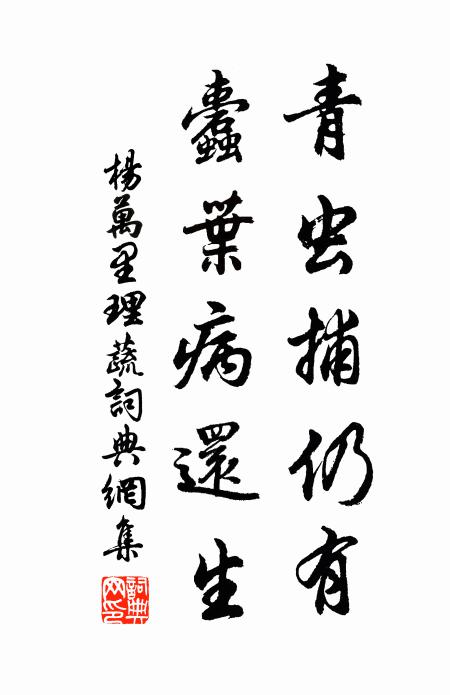 青虫捕仍有
蠹葉病還生
楊萬里理蔬詞典網集
詞典網印